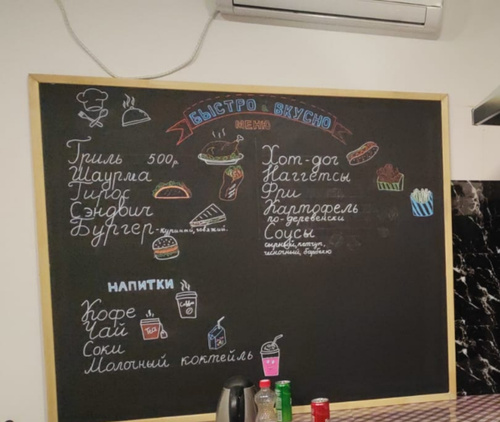 БЫСТРО & ВКУСНО
МЕНЮ
Гриль 500р
Шаурма
Гирос
Сэндвич
Бургер - куриный, говяжий.
Хот-дог
Наггетсы
Фри
Картофель
по-деревенски
Соусы
сырный, кетчуп,
чесночный, барбекю
НАПИТКИ
Кофе
Coffee
Чай
Tea
Соки
Молочный коктейль